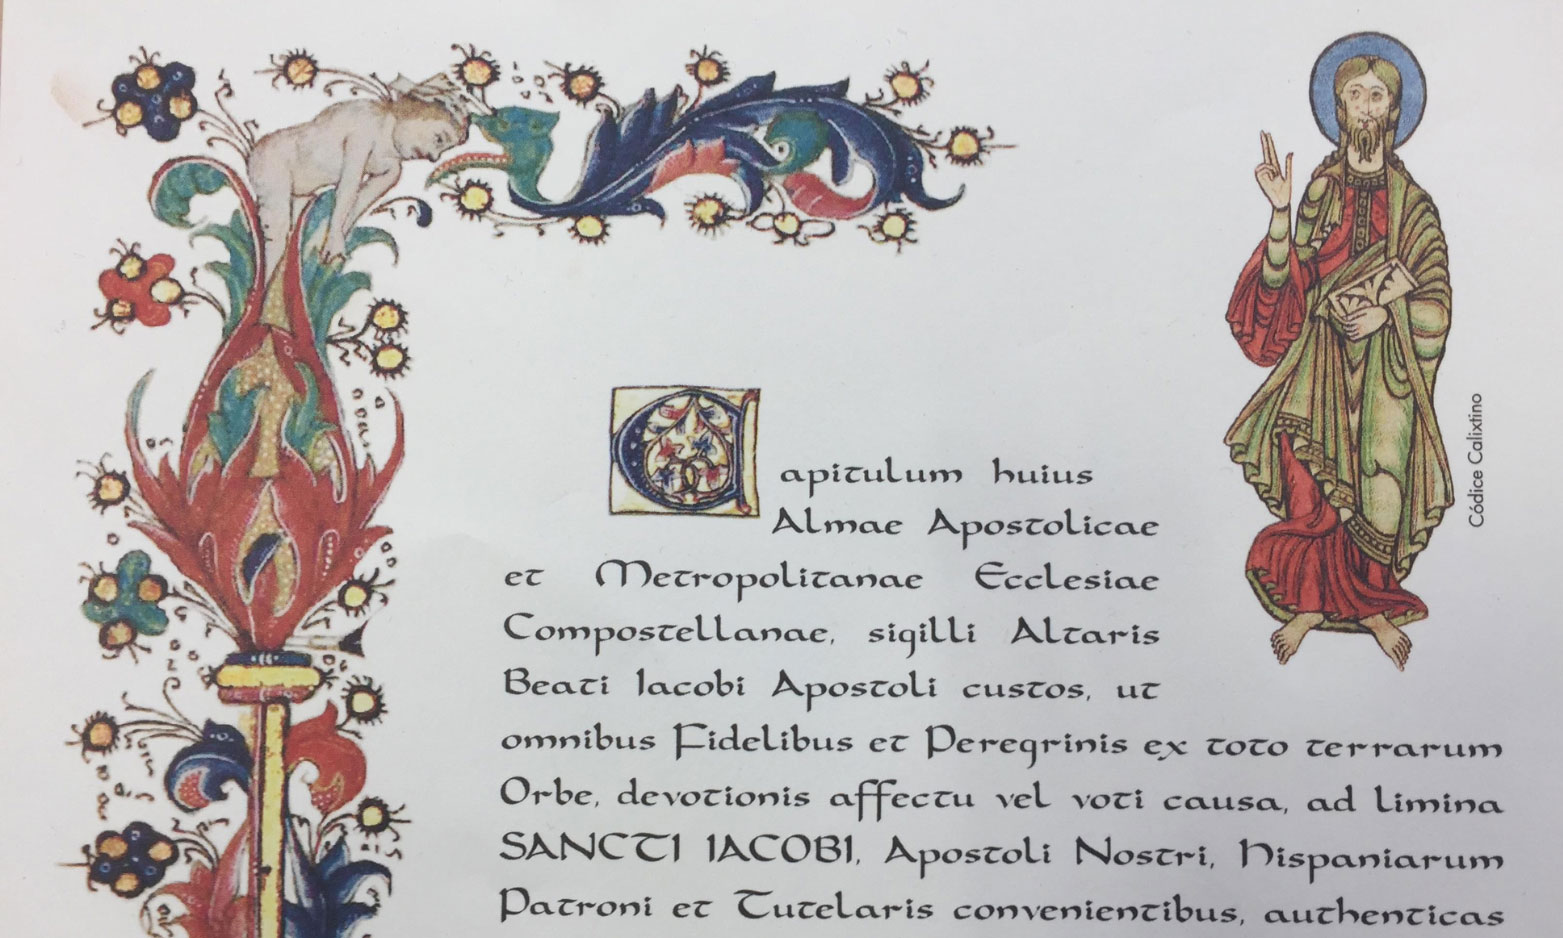 Capitulum huius
Almae Apostolicae
et Metropolitanae Ecclesiae
Compostellanae, sigilli Altaris
Beati Iacobi Apostoli custos, ut
omnibus Fidelibus et Peregrinis ex toto terrarum
Orbe, devotionis affectu vel voti causa, ad limina
SANCTI IACOBI, Apostoli Nostri, Hispaniarum
Patroni et Tutelaris convenientibus, authenticas
Códice Calixtino